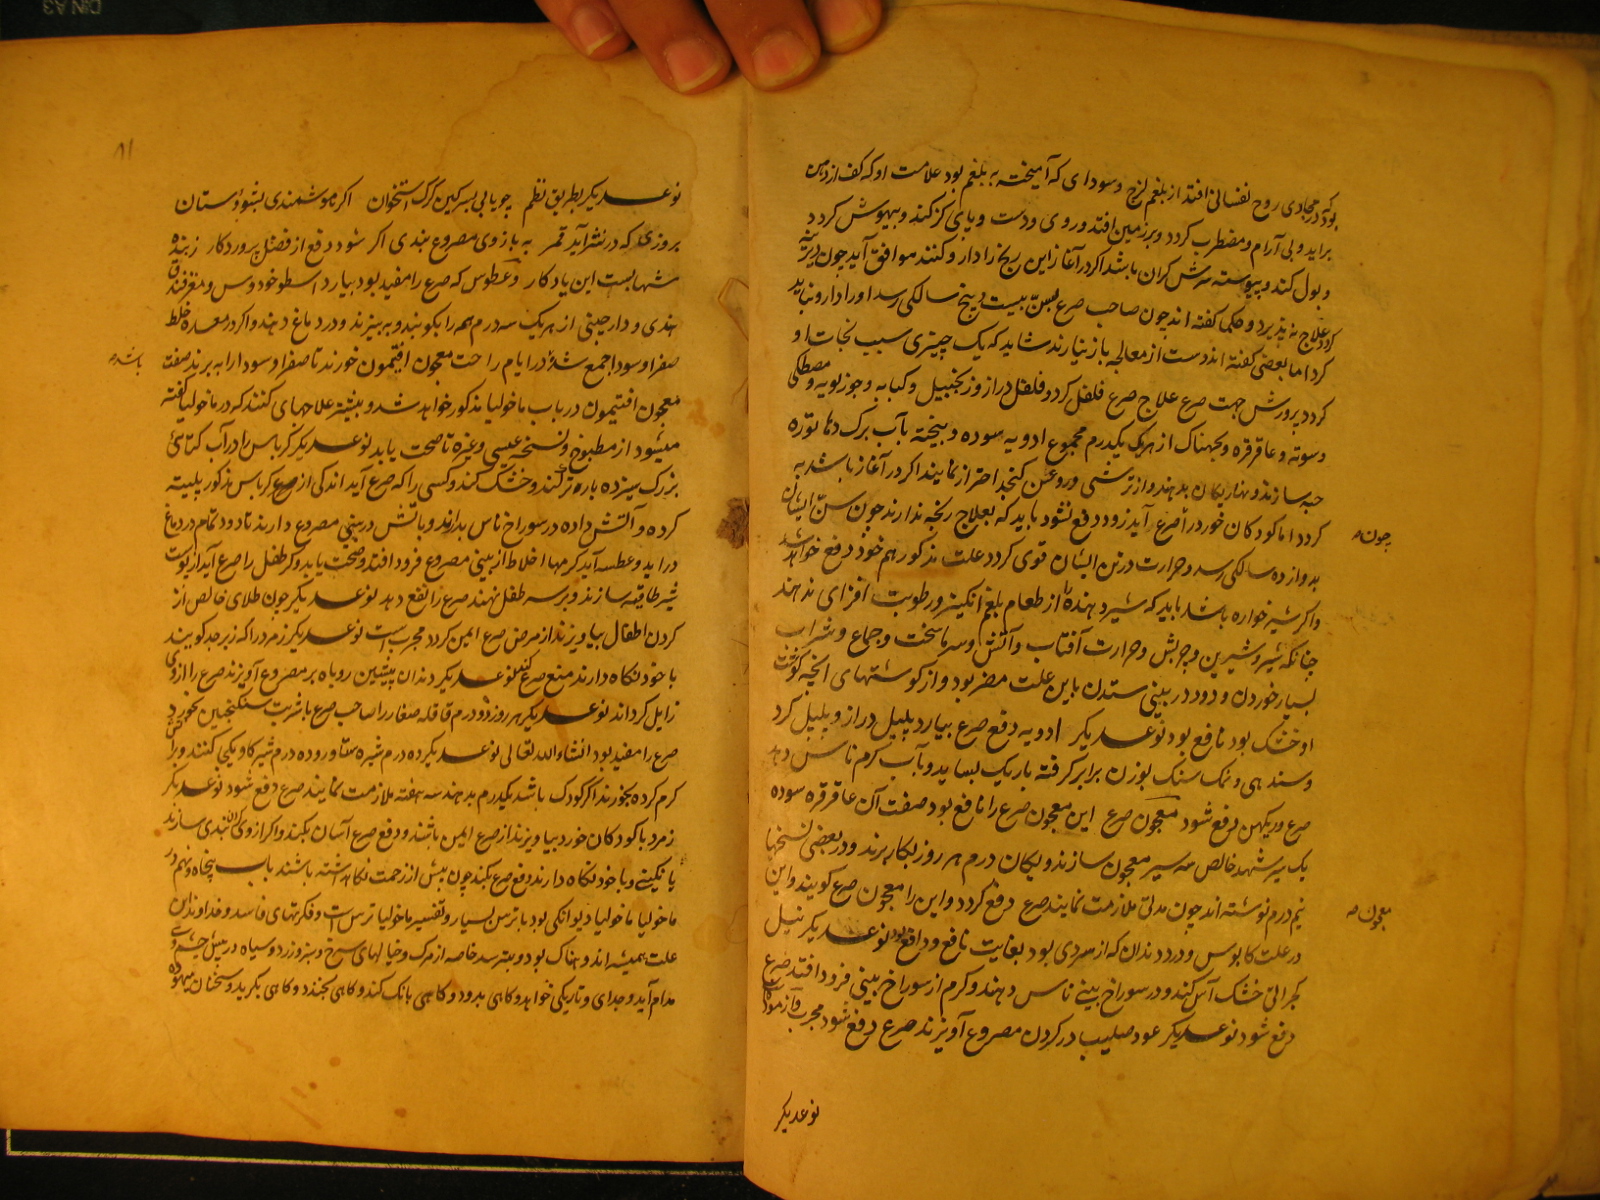 بود که در مجاری روح نفسانی افتد از بلغم لزج و سودای که آمیخته به بلغم بود علامت او که کف از دهن
براید و بی آرام و مضطرب کردد و بر زمین افتد و روی و دست و پای کژ کند و بیهوش کردد
و بول کند و پیوسته سرش کران باشد اکر در آغاز این رنج را دارو کنند موافق آید چون دیرینه
کردد علاج نه پذیرد و حکما کفته اند چون صاحب صرع بسن بیست و پنج سالکی رسد او را دارو نباید
کرد اما بعضی کفته اند دست از معالجه باز نیارند شاید که یک چیزی سبب نجات او
کردد پرورش جهت صرع علاج صرع فلفل کرد و فلفل دراز و زنجبیل و کبابه و جوزبویه و مصطکی
و سوته و عاقرقره و بجهناک از هر یک یکدرم مجموع ادویه سوده و بیخته بآب برک دهاتوره
حبه سازند و نهار یکان بدهند و از ترشی و روغن کنجد احتراز نمایند اکر در آغاز باشد به
کردد اما کودکان خورد را صرع آید زود دفع نشود باید که بعلاج رنجه ندارند چون سن ایشان
چون
بدوازده سالکی رسد و حرارت در تن ایشان قوی کردد علت مذکور هم خود دفع خواهد شد
واکر شیرخواره باشد باید که شیر دهنده را از طعام بلغم انکیز و رطوبت افزای ندهند
چنانکه شیر و شیرین و چربش و حرارت آفتاب و آتش و سرما سخت و جماع و شراب
بسیار خوردن و دود در بینی ستدن باین علت مضر بود و از کوشتهای آنچه کوشت
او خشک بود نافع بود نوعدیکر ادویه دفع صرع بیارد پلپل دراز و پلپل کرد
و سندهی و نمک سنک بوزن برابر کرفته باریک بساید و بآب کرم ناس دهد
صرع دیرکهن دفع شود معجون صرع این معجون صرع را نافع بود صفت آن عاقرقره سوده
یک سیر شهد خالص سه سیر معجون سازند و یکان درم هر روز بکار برند و در بعضی نسخها
نیم درم نوشته اند چون مدتی ملازمت نمایند صرع دفع کردد و این را معجون صرع کویند و این
معجون
در علت کابوس و درد دندان که از سردی بود بغایت نافع و دافع بود نوعدیکر نیل
کجرائی خشک آس کند و در سوراخ بینی ناس دهند و کرم از سوراخ بینی فرود افتد صرع
دفع شود نوعدیکر عود صلیب در کردن مصروع آویزند صرع دفع شود مجرب و آزموده
نوعدیکر
۸۱
نوعدیکر بطریق نظم چو یابی بسرکین کرک استخوان اکر هوشمندی بشو دستان
بروزی که در نشر آید قمر به بازوی مصروع بندی اکر شود دفع از فضل پروردکار زبنده
شهابست این یادکار و عطوس که صرع را مفید بود بیارد اسطوخودوس و مغز فندق
هندی و دارچینی از هر یک سه درم همه را بکوبند و به بیزند و در دماغ دهند و اکر در معده خلط
صفرا و سودا جمع شده در ایام راحت معجون افتیمون خورند تا صفرا و سودا را به برند صفت
باشد
معجون افتیمون در باب ماخولیا مذکور خواهد شد و بیشتر علاجهای کنند که در ماخولیا کفته
میشود از مطبوخ و نسخه عیسی و غیره تا صحت یابد نوعدیکر کرباس را در آب کتائی
بزرک سیزده باره تر کند و خشک کند و کسی را که صرع آید اندکی از کرباس مذکور پلیته
کرده و آتش داده در سوراخ ناس بدارند و با تش در بینی مصروع دارند تا دود تمام در دماغ
دراید و عطسه آید کرمها اخلاط از بینی مصروع فرود افتد و صحت یابد و کر طفل را صرع آید از پوست
شیر طاقیه سازند و بر سه طفل نهند صرع را نفع دهد نوعدیکر چون طلای خالص از
کردن اطفال بیاویزند از مرض صرع ایمن کردد مجربست نوعدیکر زمرد را که زبرجد کویند
با خود نکاه دارند منع صرع کند نوعدیکر دندان پیشین روباه بر مصروع آویزند صرع را از وی
زایل کرداند نوعدیکر هر روز دو درم قاقله صغار را صاحب صرع با شربت سکنجبین بخورد
صرع را مفید بود انشاءالله تعالی نوعدیکر ده درم شیره ستاور و ده درم شیر کاو یکجی کنند و را
کرم کرده بخورند اکر کودک باشد یکدرم بدهند سه هفته ملازمت نمایند صرع دفع شود نوعدیکر
زمرد با کودکان خورد بیاویزند از صرع ایمن باشند و دفع صرع آسان بکند و اکر از وی بندی سازند
یا نکینی و با خود نکاه دارند دفع صرع بکند چون پیش از زحمت نکاه داشته باشند باب پنجاه و نهم در
ماخولیا ماخولیا دیوانکی بود با ترس بسیار و تفسیر ماخولیا ترس است و فکرتهای فاسد و خداوند این
علت همیشه اندوهناک بود و بترسد خاصه از مرک و خیالهای سرخ و سبز و زرد و سیاه در پیش چشم وی
مدام آید و جدای و تاریکی خواهد و کاهی بدود و کاهی بانک کند و کاهی بخندد و کاهی بکرید و سخنان بیهوده